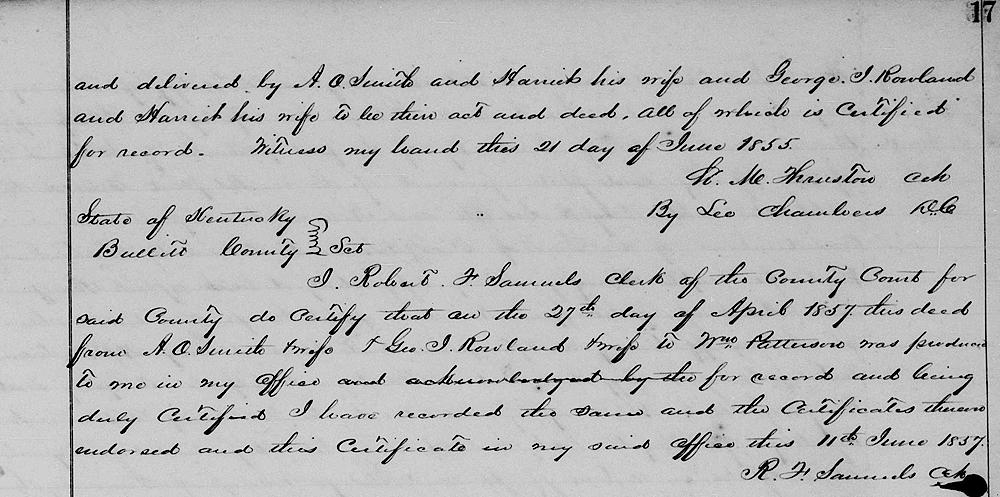 17
and delivered by A. O. Smith and Harriet his wife and George. I. Rowland
and Harriet his wife to be their act and deed, all of which is Certified
for record. Witness my hand this 21 day of June 1855.
W. M. Thruston Clk
State of Kentucky By Leo Chambers D.C
Bullitt County Sct
I. Robert. F. Samuels Clerk of the County Court for
said County do Certify that on the 27th day of April 1857 this deed
from A. O. Smith & wife & Geo. I. Rowland & wife to Wm Patterson was produced
to me in my office and acknowledged by the for record and being
duly Certified I have recorded the same and the Certificates thereon
endorsed and this Certificate in my said office this 11th June 1857.
R. F. Samuels Clk